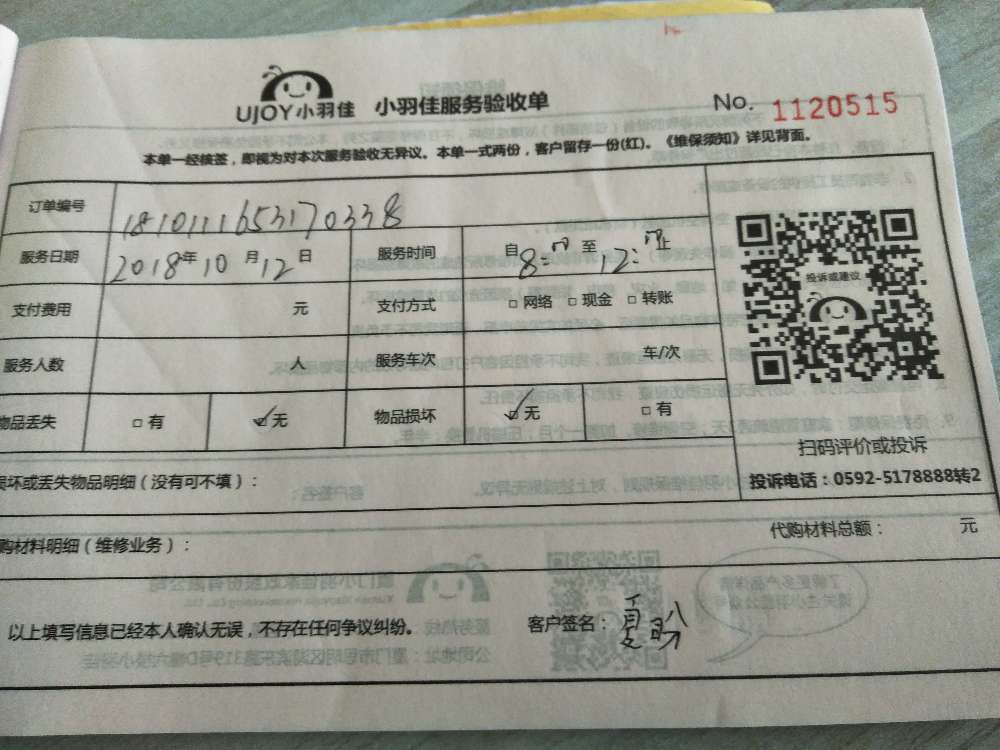 UJOY小羽佳 小羽佳服务验收单 No. 1120515
本单一经核签，即视为对本次服务验收无异议。本单一式两份，客户留存一份(红)。《维保须知》详见背面。
订单编号 1810111653170338
服务日期 2018年10月12日 服务时间 自8:00至12:00止
支付费用 元 支付方式 □网络 □现金 □转账
服务人数 人 服务车次 车/次
物品丢失 □有 ☑无 物品损坏 ☑无 □有
投诉或建议
扫码评价或投诉
投诉电话：0592-5178888转2
损坏或丢失物品明细（没有可不填）：
购材料明细（维修业务）： 代购材料总额： 元
以上填写信息已经本人确认无误，不存在任何争议纠纷。 客户签名：夏